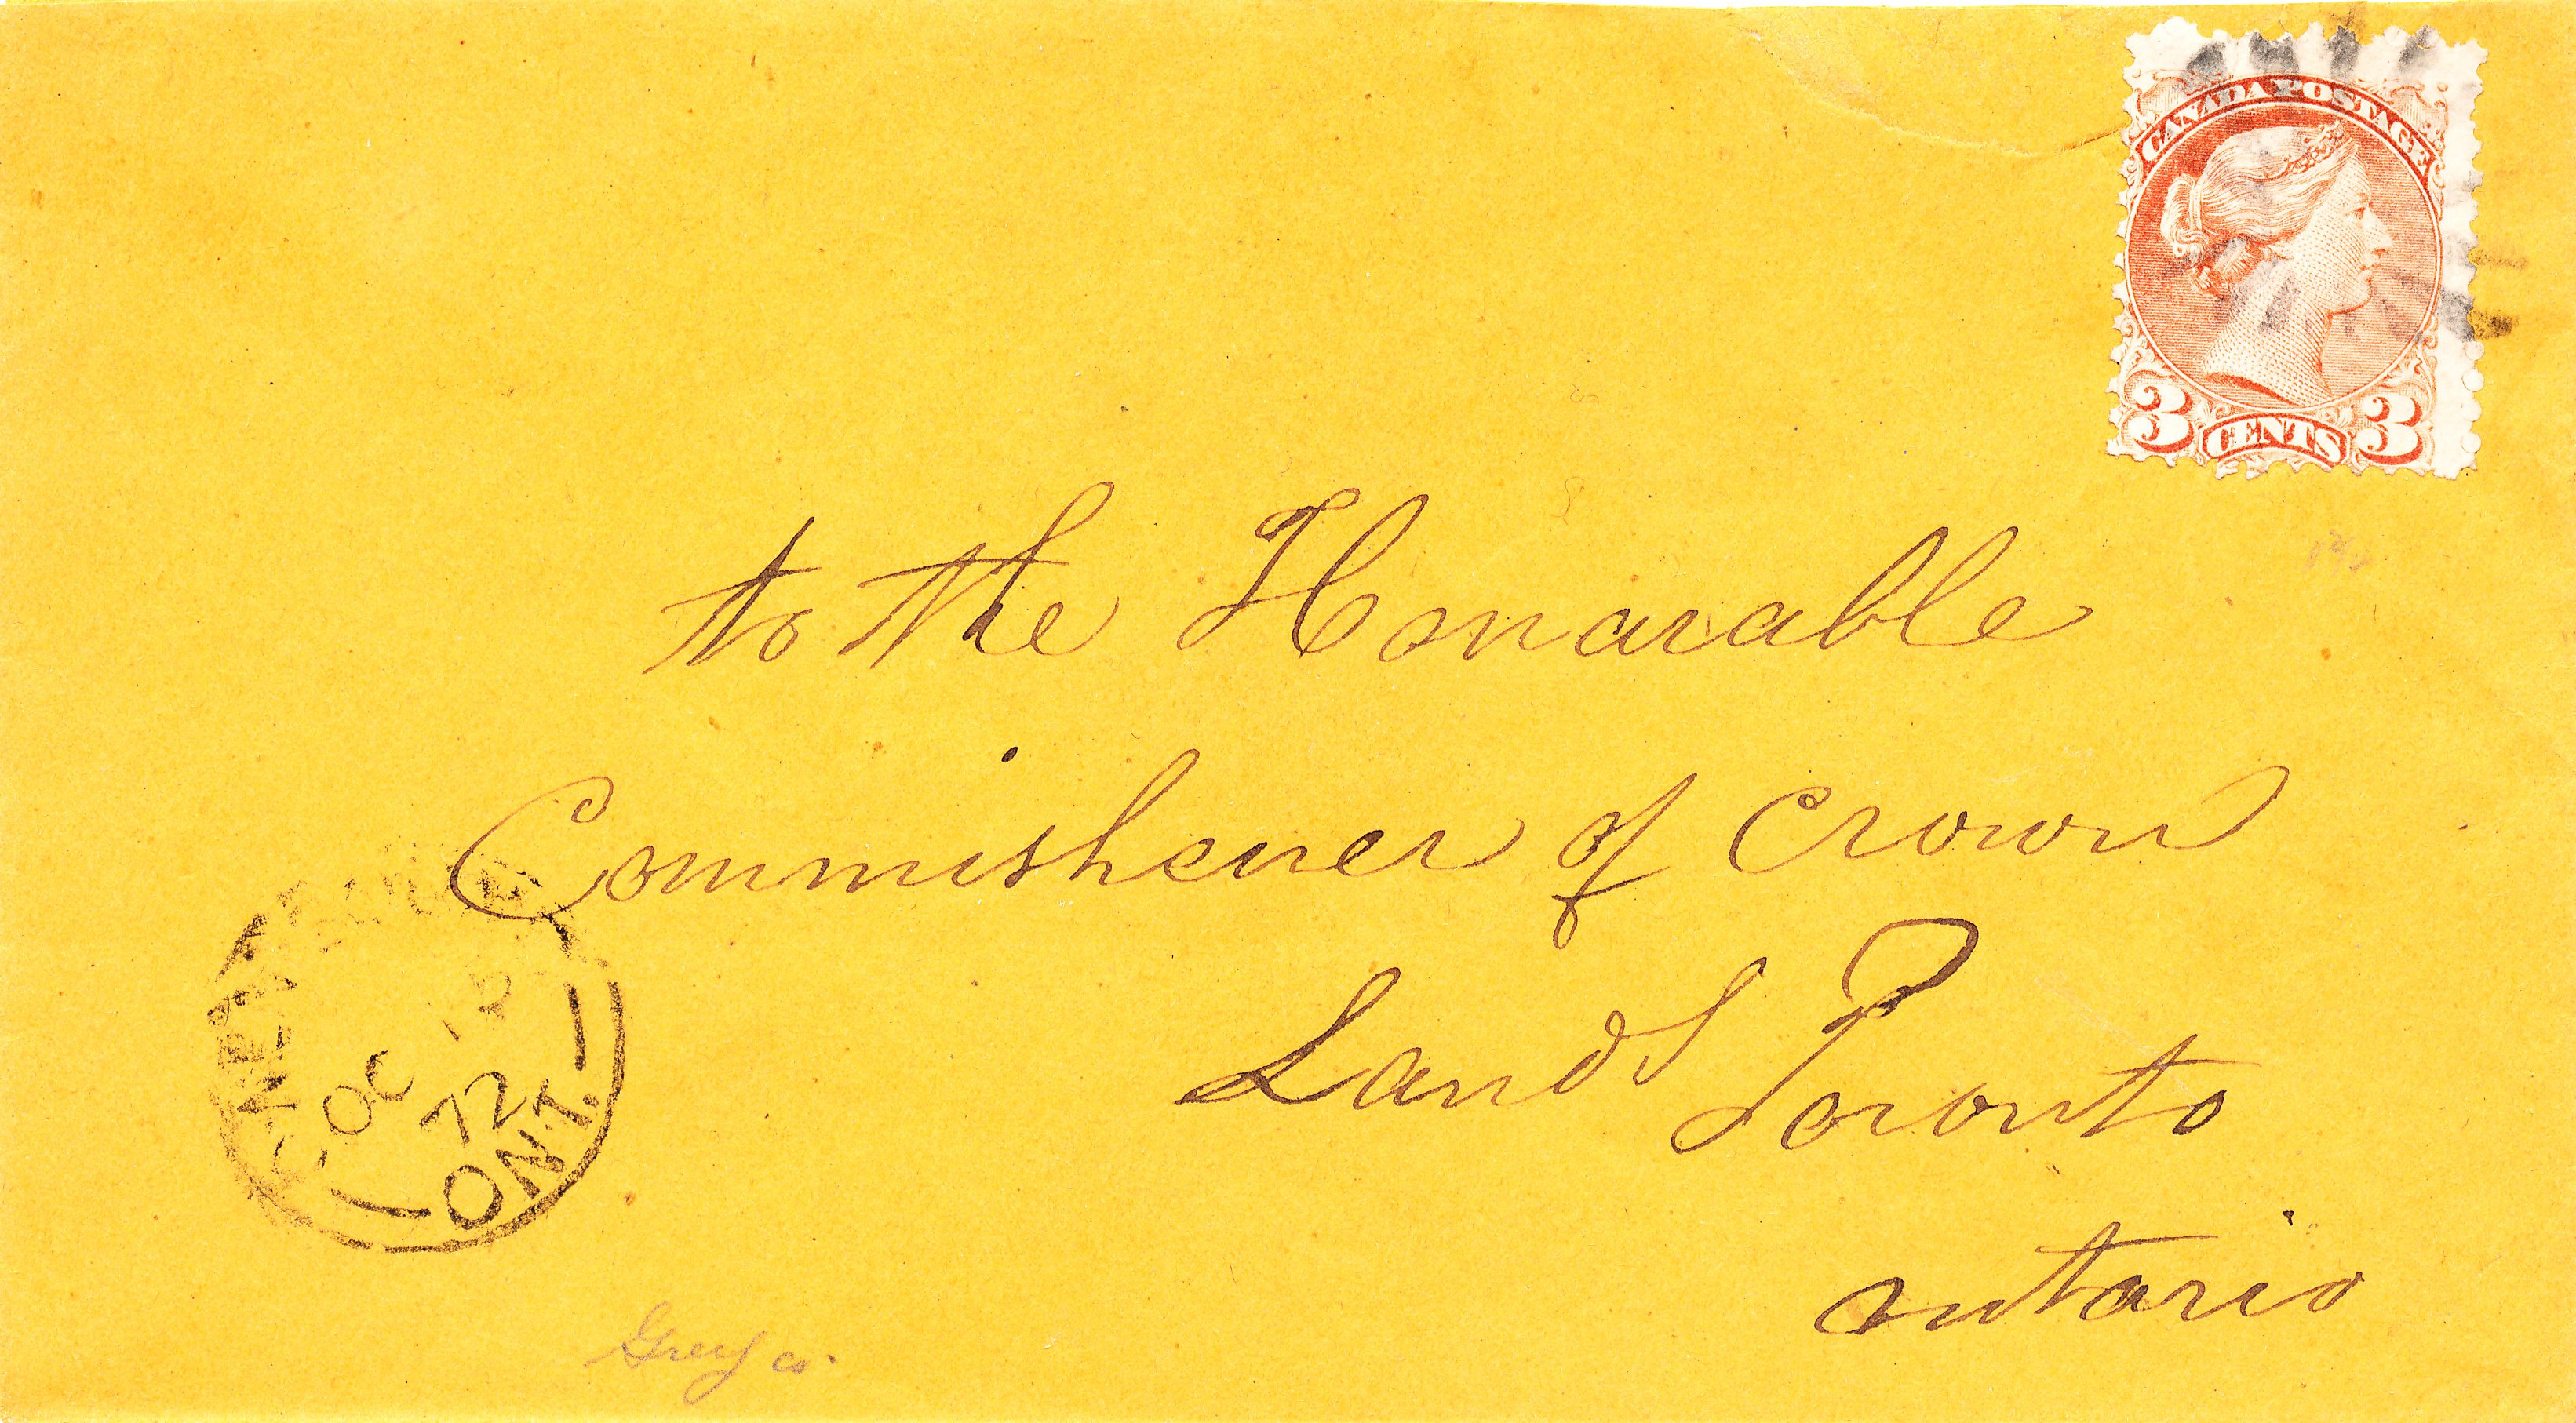 CANADA POSTAGE
3 CENTS 3
to the Honarable
Commishener of Crown
Lands Toronto
ontario
OC 15
72
ONT.
Grey co.